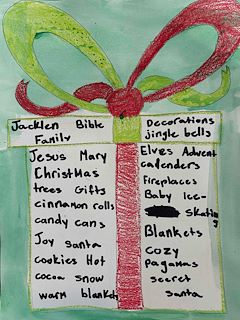 Jacklen Bible
Family
Jesus Mary
Christmas
trees Gifts
cinnamon rolls
candy cans
Joy santa
cookies Hot
cocoa snow
warm blankets
Decorations
jingle bells
Elves Advent
calenders
Fireplaces
Baby Ice-
skating
Blankets
cozy
pagamas
secret
santa